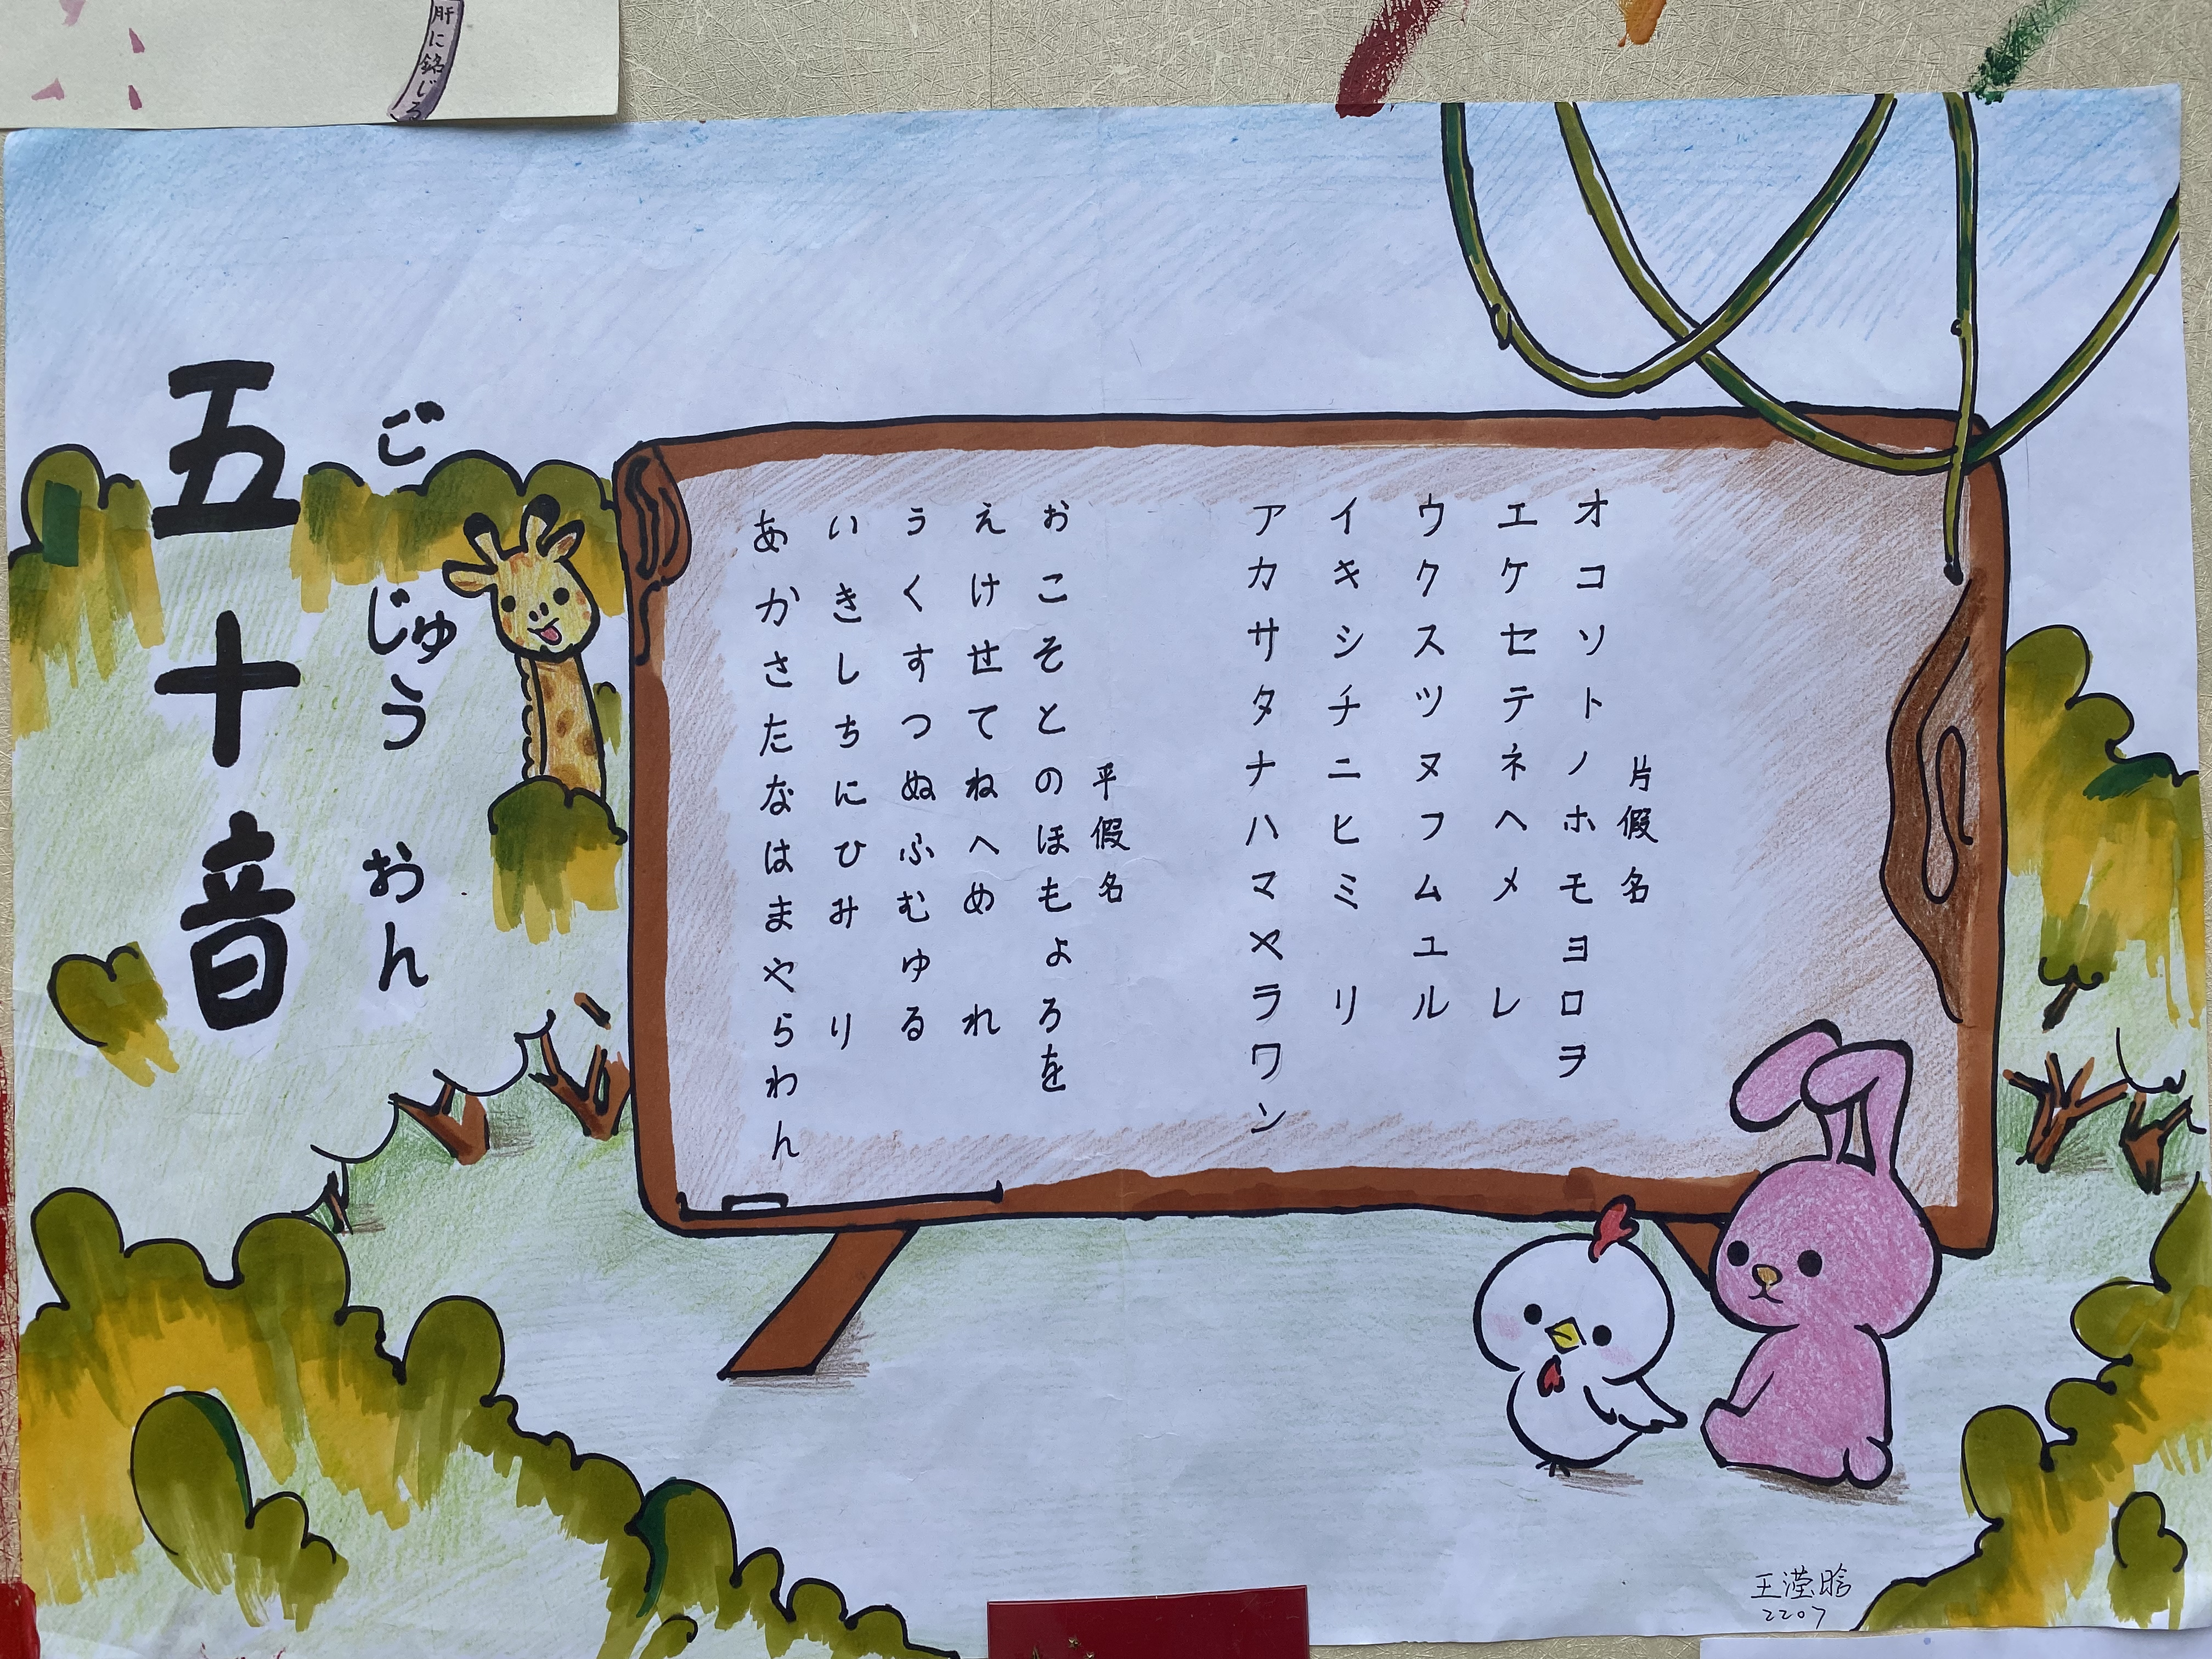 肝に銘じろ
五十音
ごじゅうおん
あかさたなはまやらわん
いきしちにひみ り
うくすつぬふむゆる
えけせてねへめ れ
おこそとのほもよろを
平假名
アカサタナハマヤラワン
イキシチニヒミ リ
ウクスツヌフムユル
エケセテネヘメ レ
オコソトノホモヨロヲ
片假名
王滢晗
2207